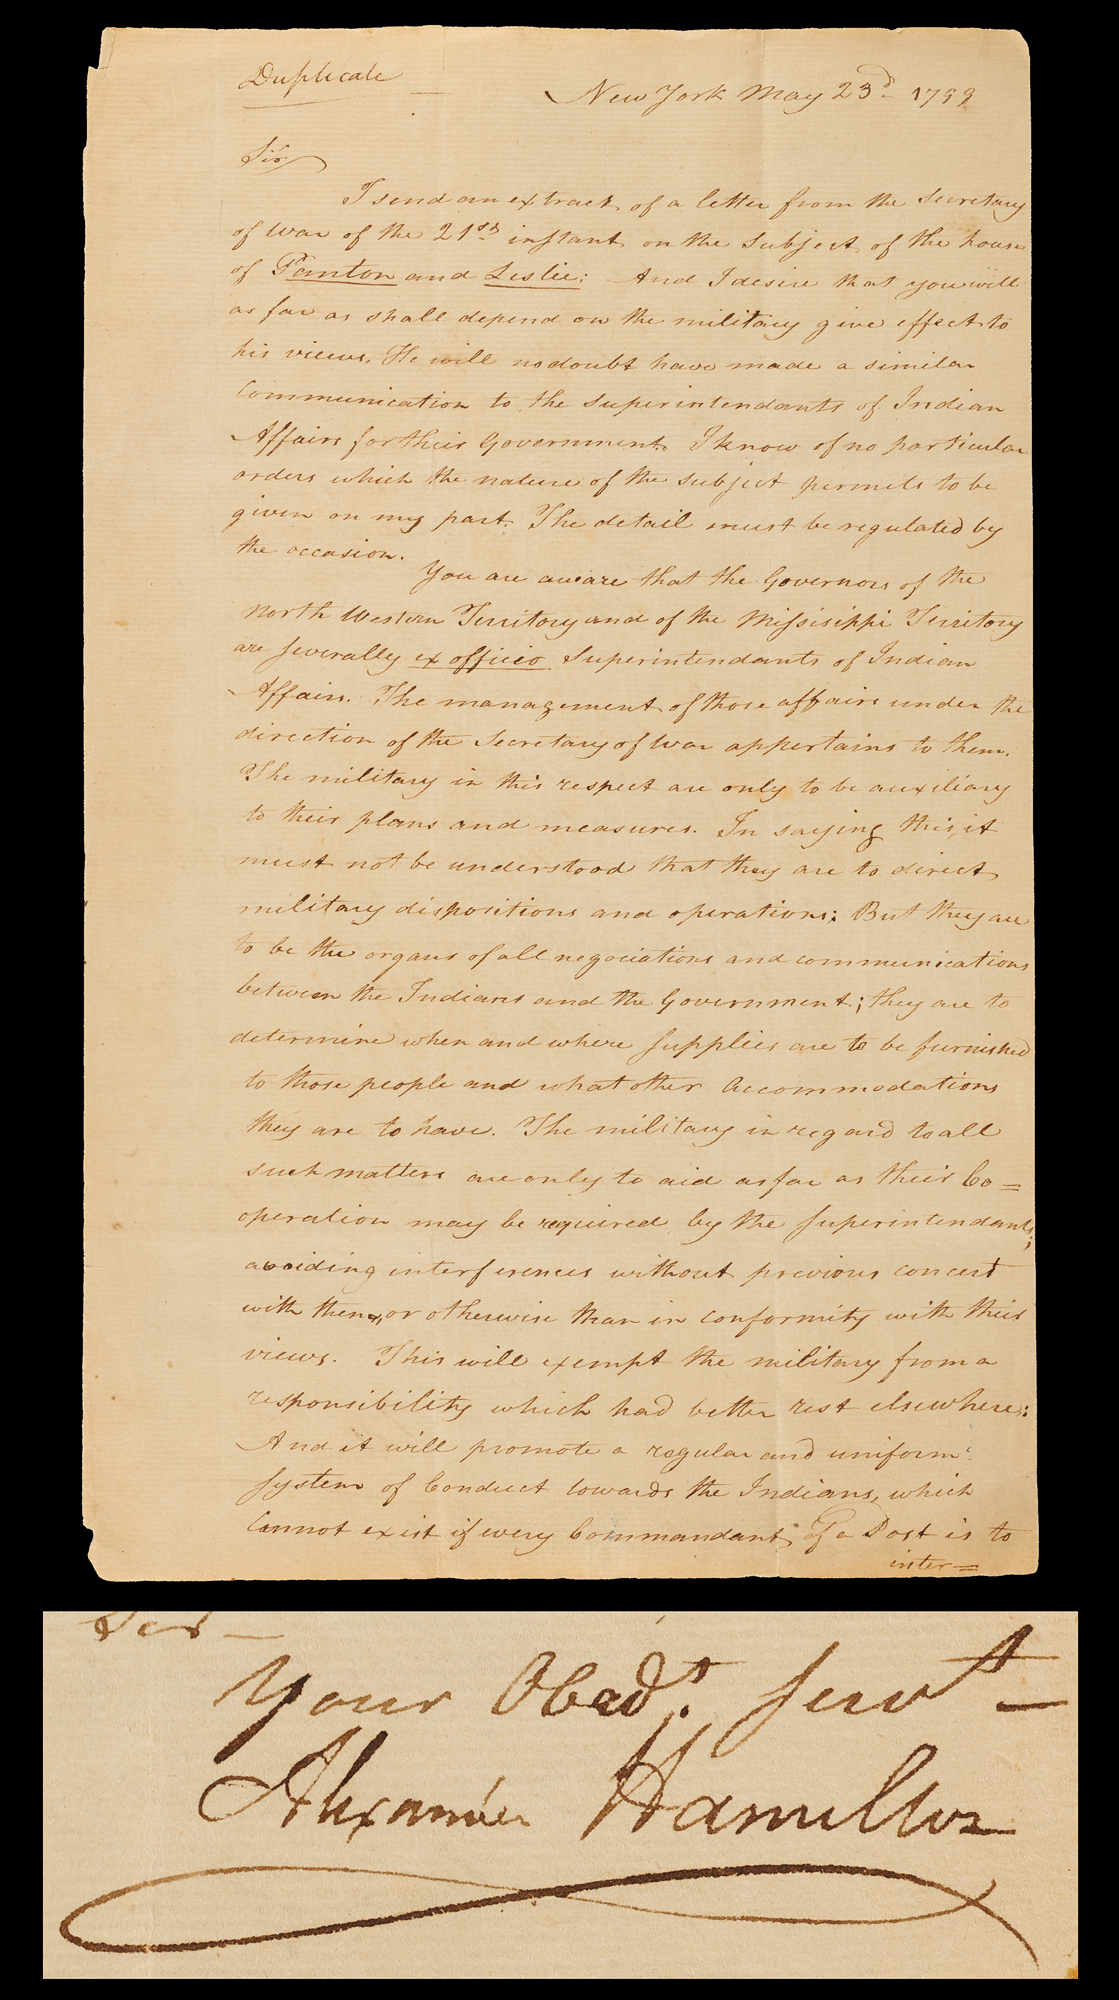 Duplicate
New York May 23d. 1799
Sir.
I send an extract of a letter from the Secretary
of War of the 21st. instant on the subject of the house
of Panton and Leslie: And I desire that you will
as far as shall depend on the military give effect to
his views. He will no doubt have made a similar
Communication to the Superintendants of Indian
Affairs for their Government. I know of no particular
orders which the nature of the subject permits to be
given on my part. The detail must be regulated by
the occasion.
You are aware that the Governors of the
North Western Territory and of the Missisippi Territory
are severally ex officio Superintendants of Indian
Affairs. The management of those affairs under the
direction of the Secretary of War appertains to them.
The military in this respect are only to be auxiliary
to their plans and measures. In saying this, it
must not be understood that they are to direct
military dispositions and operations; But they are
to be the organs of all negociations and communications
between the Indians and the Government; they are to
determine when and where supplies are to be furnished
to those people and what other Accommodations
they are to have. The military in regard to all
such matters are only to aid as far as their Co=
operation may be required by the superintendants;
avoiding interferences without previous concert
with them, or otherwise than in conformity with their
views. This will exempt the military from a
responsibility which had better rest elsewhere:
And it will promote a regular and uniform
system of Conduct towards the Indians, which
Cannot exist if every Commandant of a Post is to
inter=
Sir—
Your Obedt. servt—
Alexander Hamilton